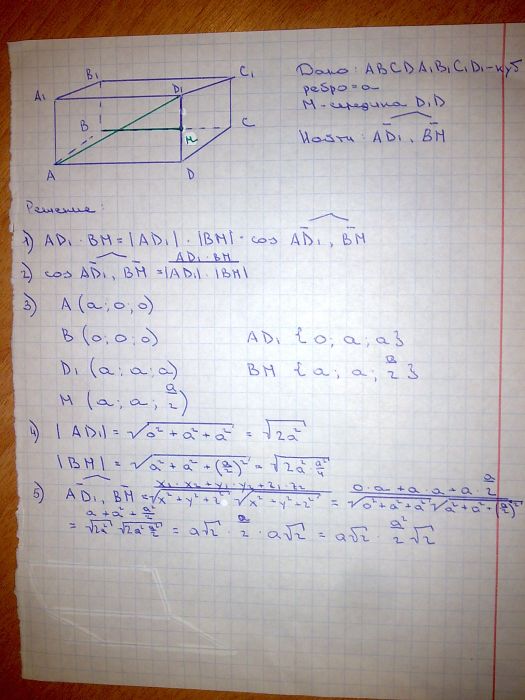 B₁ C₁
A₁ D₁
B M C
A D
Дано: ABCDA₁B₁C₁D₁ - куб
ребро = a
M - середина D₁D
Найти: AD₁, BM
Решение:
1) AD₁ · BM = |AD₁| · |BM| · cos AD₁, BM
2) cos AD₁, BM = AD₁ · BM / |AD₁| · |BM|
3) A (a; 0; 0)
B (0; 0; 0) AD₁ {0; a; a}
D₁ (a; a; a) BM {a; a; a/2}
M (a; a; a/2)
4) |AD₁| = √(0² + a² + a²) = √(2a²)
|BM| = √(a² + a² + (a/2)²) = √(2a² a²/4)
5) AD₁, BM = (x₁ · x₂ + y₁ · y₂ + z₁ · z₂) / (√(x² + y² + z²) √(x² + y² + z²)) = (0 · a + a · a + a · a/2) / (√(0² + a² + a²) √(a² + a² + (a/2)²))
= (a + a² + a²/2) / (√(2a²) √(2a² a²/2)) = a√2 · a/2 · a√2 = a√2 · a²/2 √2